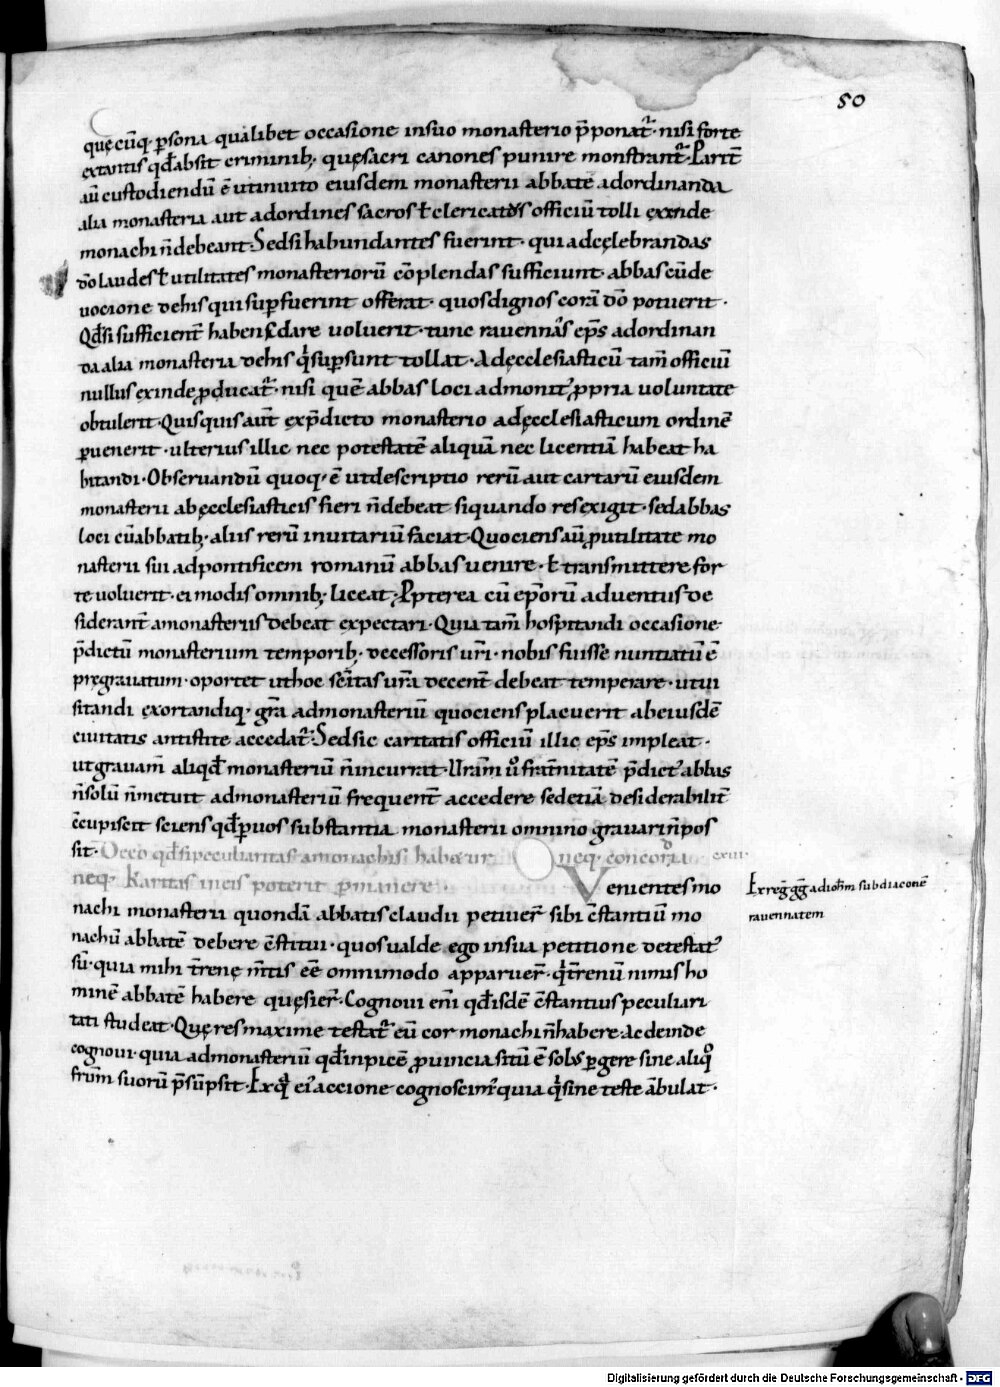 50
quęcūq· ꝑsona qualibet occasione insuo monasterio p̄ponat᷑· nisi forte
extantis qd̄ absit criminib;· quęsacri canones punire monstrant᷑· Parit̄
aū custodiendū ē utinuito eiusdem monasterii abbate adordinanda
alia monasteria aut adordines sacros ł clericatus officiū tolli exinde
monachi n̄debeant· Sedsi habundantes fuerint· qui adcęlebrandas
dō laudes ł utilitates monasteriorū cōplendas sufficiunt· abbas cūde
uocione dehis qui suꝑfuerint offerat· quos dignos corā dō potuerit·
Qd̄si sufficient̄ habens dare uoluerit· tunc rauennās ep̄s adordinan
da alia monasteria dehis q̇suꝑsunt tollat· Adęcclesiasticū tam̄ officiū
nullus exinde ꝓducat᷑· nisi quē abbas loci admonit᷒ ꝓpria uoluntate
obtulerit· Quisquis aut̄ exp̄dicto monasterio adęcclesiasticum ordinē
ꝑuenerit· ulterius illic nec potestatē aliquā nec licentiā habeat ha
bitandi· Obseruandū quoq·ē utdescriptio rerū aut cartarū eiusdem
monasterii abęcclesiasticis fieri n̄debeat siquando resexigit· sedabbas
loci cūabbatib;· aliis rerū inuitariū faciat· Quociens aū ꝓutilitate mo
nasterii sui adpontificem romanū abbas uenire· ł transmittere for
te uoluerit· ei modis omnib; liceat· Ꝓpterea cū ep̄orū aduentus de
siderant̄ amonasteriis debeat expectari· Quia tam̄ hospitandi occasione
p̄dictū monasterium temporib;· decessoris ur̄i· nobis fuisse nuntiatū ē
pręgrauatum· oportet uthoc sc̄itas ur̄a decent̄ debeat temperare· utui
sitandi exortandiq· gr̄a admonasteriū quociens placuerit abeiusdē
ciuitatis antistite accedat᷑· Sedsic caritatis officiū illic ep̄s impleat·
utgrauam̄ aliqd̄ monasteriū n̄incurrat· Uram̄ u̇ frat̄nitatē p̄dict᷒ abbas
n̄solū n̄metuit admonasteriū frequent̄ accedere sedetiā desiderabilit̄
c̄cupiscit sciens qd̄ ꝑuos substantia monasterii omnino grauari n̄pos
sit· Qd̄si peculiaritas amonachis habetur neq· concordia cxiii·
neq· Karitas ineis poterit ꝑmanere·
Uenientes mo
nachi monasterii quondā abbatis claudii petiuer̄ sibi c̄stantiū mo
nachū abbatē debere c̄stitui· quos ualde ego insua petitione detestat᷒
sū· quia mihi t̄renę m̄tis eē omnimodo apparuer̄· q̇t̄renū nimis ho
minē abbatē habere quęsier̄· Cognoui eni qd̄isdē c̄stantius peculiari
tati studeat· Quę res maxime testat᷑ eū cor monachi n̄habere· Ac deinde
cognoui· quia admonasteriū qd̄inpicē ꝓuincia sitū ē solus ꝑgere sine aliq̊
fr̄um suorū p̄sūpsit· Exq̇ ei᷒ accione cognoscim᷒ quia q̇sine teste ābulat·
Exreg̅ g̅g̅ adioh̄m subdiaconē
rauennatem
Digitalisierung gefördert durch die Deutsche Forschungsgemeinschaft - DFG